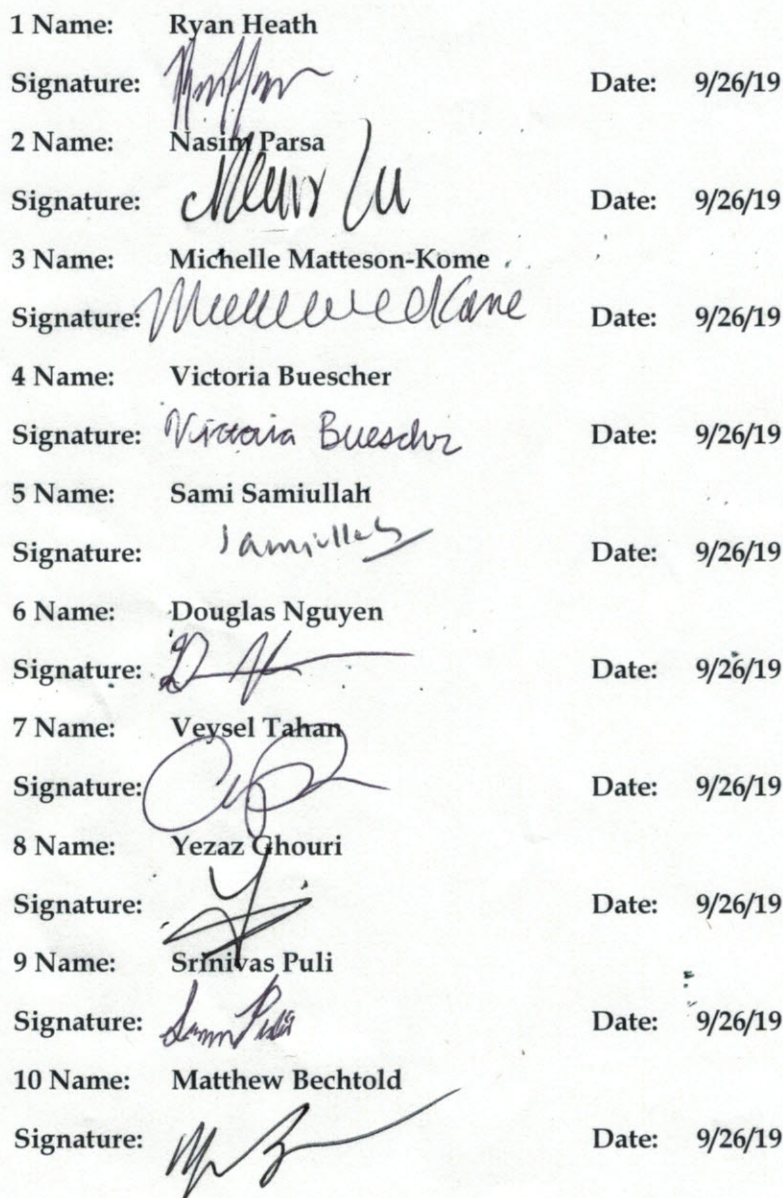 1 Name: Ryan Heath
Signature: Date: 9/26/19
2 Name: Nasim Parsa
Signature: Date: 9/26/19
3 Name: Michelle Matteson-Kome
Signature: Date: 9/26/19
4 Name: Victoria Buescher
Signature: Victoria Buescher Date: 9/26/19
5 Name: Sami Samiullah
Signature: Samiullah Date: 9/26/19
6 Name: Douglas Nguyen
Signature: Date: 9/26/19
7 Name: Veysel Tahan
Signature: Date: 9/26/19
8 Name: Yezaz Ghouri
Signature: Date: 9/26/19
9 Name: Srinivas Puli
Signature: Date: 9/26/19
10 Name: Matthew Bechtold
Signature: Date: 9/26/19